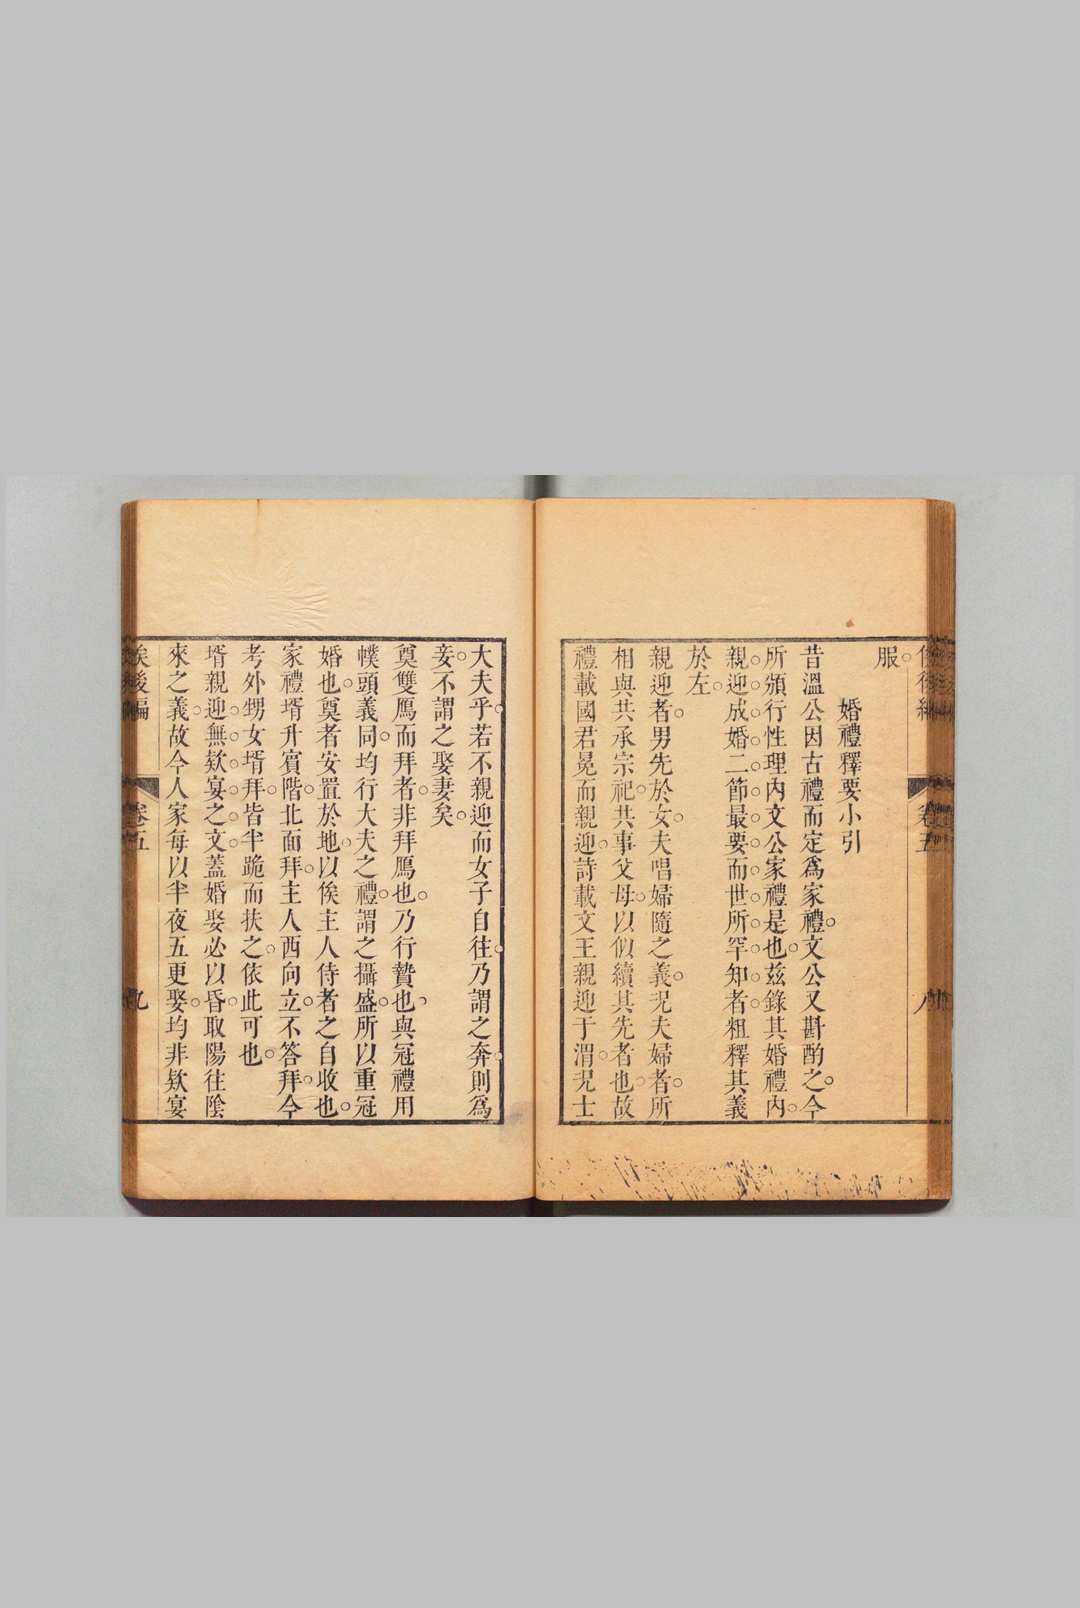 服
婚禮釋要小引
昔溫公因古禮而定爲家禮文公又斟酌之今
所頒行性理內文公家禮是也茲錄其婚禮內
親迎成婚二節最要而世所罕知者粗釋其義
於左
親迎者男先於女夫唱婦隨之義況夫婦者所
相與共承宗祀共事父母以似續其先者也故
禮載國君冕而親迎詩載文王親迎于渭況士
大夫乎若不親迎而女子自往乃謂之奔則爲
妾不謂之娶妻矣
奠雙鴈而拜者非拜鴈也乃行贄也與冠禮用
幞頭義同均行大夫之禮謂之攝盛所以重冠
婚也奠者安置於地以俟主人侍者之自收也
家禮壻升賓階北面拜主人西向立不答拜今
考外甥女壻拜皆半跪而扶之依此可也
壻親迎無欵宴之文蓋婚娶必以昏取陽往陰
來之義故今人家每以半夜五更娶均非欵宴
俟後編
卷五
九